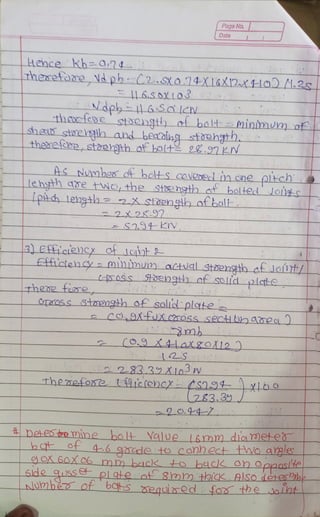 Page No.
Date
Hence Kb = 0.74
Therefore, Vdpb = (2.5x0.74x16x12x410)/1.25
= 116.50x10³
Vdpb = 116.50 kN
Therefore strength of bolt = minimum of
shear strength and bearing strength.
therefore, strength of bolt = 28.97 KN
As Number of bolts covered in one pitch
length are two, the strength of bolted Joints
/pitch length = 2 x strength of bolt.
= 2 x 28.97
= 57.94 KN
3) Efficiency of joint :
Efficiency = minimum actual strength of Joint/
Gross strength of solid plate.
There fore,
Gross strength of solid plate =
= (0.9 x fu x cross section area)
γmb
= (0.9 x 410 x 80 x 12)
1.25
= 283.39 x 10³ N
Therefore Efficiency = (57.94) x 100
(283.39)
= 20.44 %
Determine bolt value 16mm diameter
bolt of 4.6 grade to connect two angles
90x60x06 mm back to back on opposite
side gusset plate of 8mm thick Also determine
Number of bolts required for the joint